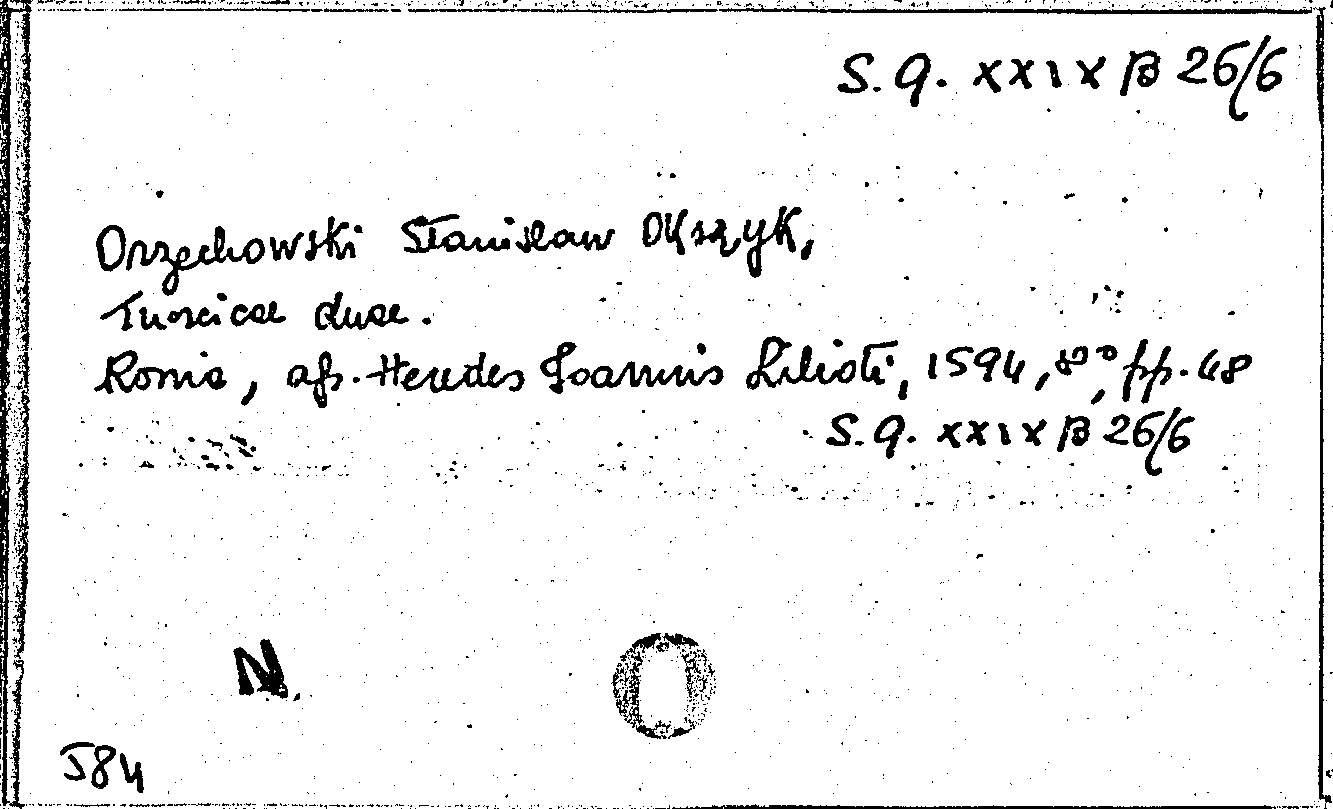 S. Q. XXIX B 26/6
Orzechowski Stanislaw Okszyk,
Turcicae duae.
Roma, ap. Heredes Joannis Lilioti, 1594, 8°, pp. 48
S. Q. XXIX B 26/6
N.
584